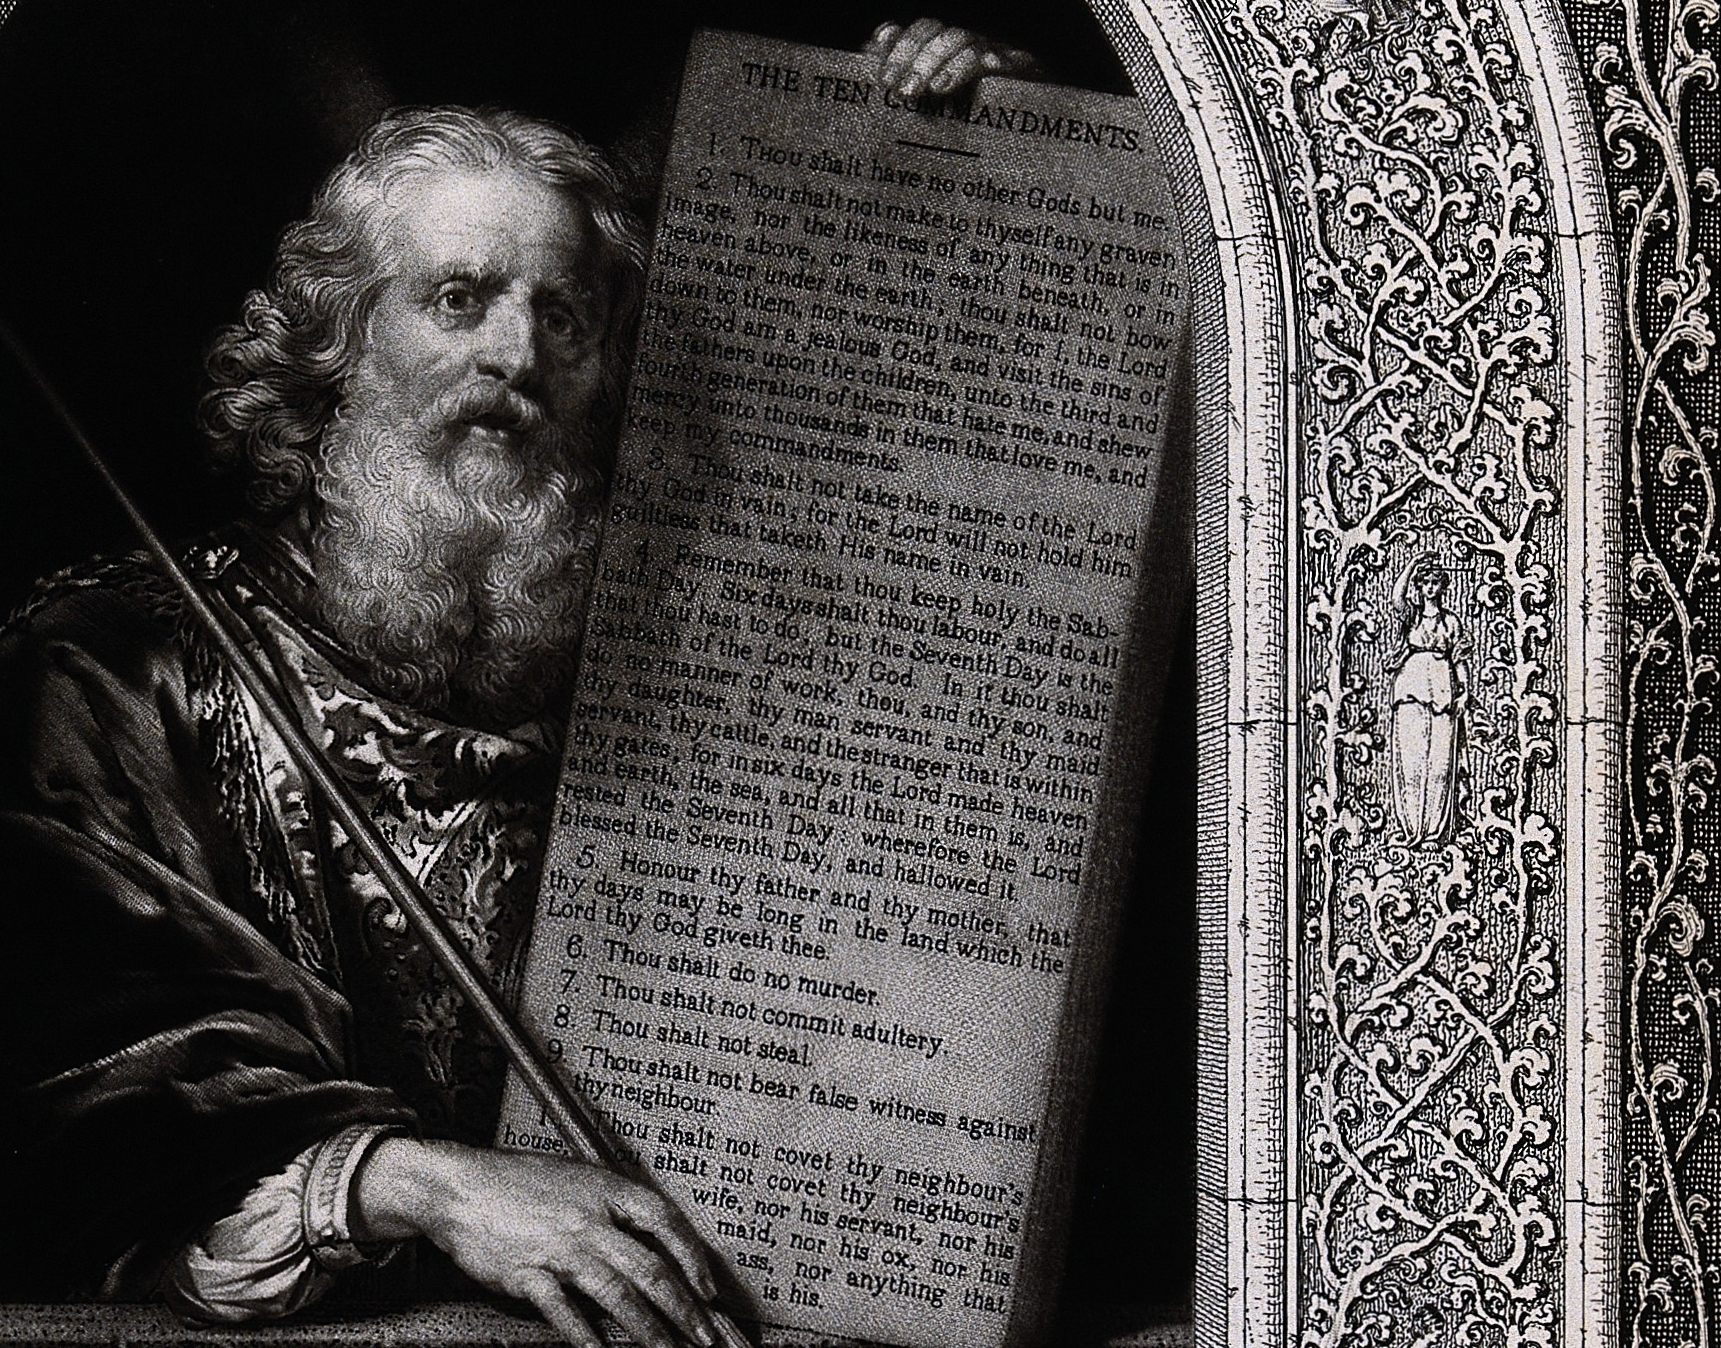 THE TEN COMMANDMENTS.
1. Thou shalt have no other Gods but me.
2. Thou shalt not make to thyself any graven
image, nor the likeness of any thing that is in
heaven above, or in the earth beneath, or in
the water under the earth; thou shalt not bow
down to them, nor worship them, for I, the Lord
thy God am a jealous God, and visit the sins of
the fathers upon the children, unto the third and
fourth generation of them that hate me, and shew
mercy unto thousands in them that love me, and
keep my commandments.
3. Thou shalt not take the name of the Lord
thy God in vain; for the Lord will not hold him
guiltless that taketh His name in vain.
4. Remember that thou keep holy the Sab-
bath Day. Six days shalt thou labour, and do all
that thou hast to do, but the Seventh Day is the
Sabbath of the Lord thy God. In it thou shalt
do no manner of work, thou, and thy son, and
thy daughter, thy man servant and thy maid
servant, thy cattle, and the stranger that is within
thy gates; for in six days the Lord made heaven
and earth, the sea, and all that in them is, and
rested the Seventh Day: wherefore the Lord
blessed the Seventh Day, and hallowed it.
5. Honour thy father and thy mother, that
thy days may be long in the land which the
Lord thy God giveth thee.
6. Thou shalt do no murder.
7. Thou shalt not commit adultery.
8. Thou shalt not steal.
9. Thou shalt not bear false witness against
thy neighbour.
Thou shalt not covet thy neighbour's
house, shalt not covet thy neighbour's
wife, nor his servant, nor his
maid, nor his ox, nor his
ass, nor anything that
is his.